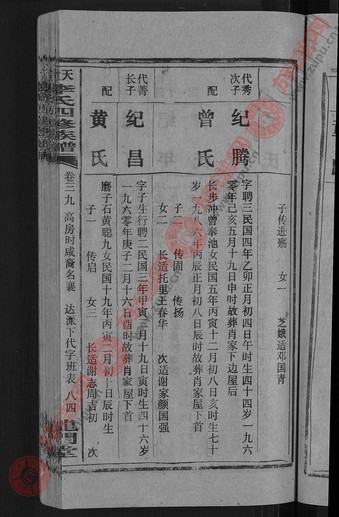 子传进殇 女一 芝娥适邓国青
代秀次子
纪腾
字聘三民国四年乙卯正月初四日午时生四十四岁一九六
零年己亥五月十九日申时故葬肖家下边屋后
配
曾氏
长步冲曾奉池女民国五年丙辰十二月初八日亥时生七十
岁一九八六年丙辰正月初八日寅时故葬肖家屋下首
子二 传固 传扬
女二 长适托里王春华 次适谢家颜国强
代菁长子
纪昌
字子生行聘二民国三年甲寅三月十九日寅时生四十六岁
一九六零年庚子二月十六日酉时故葬肖家屋下首
配
黄氏
磨子石黄聪九女民国十九年丙寅二月初十日辰时生
子一 传启 女三 长适谢志周吉初 次
李氏四修族谱
卷三九 高房时咸裔名襄 达派下代字班表 八四
龙门堂